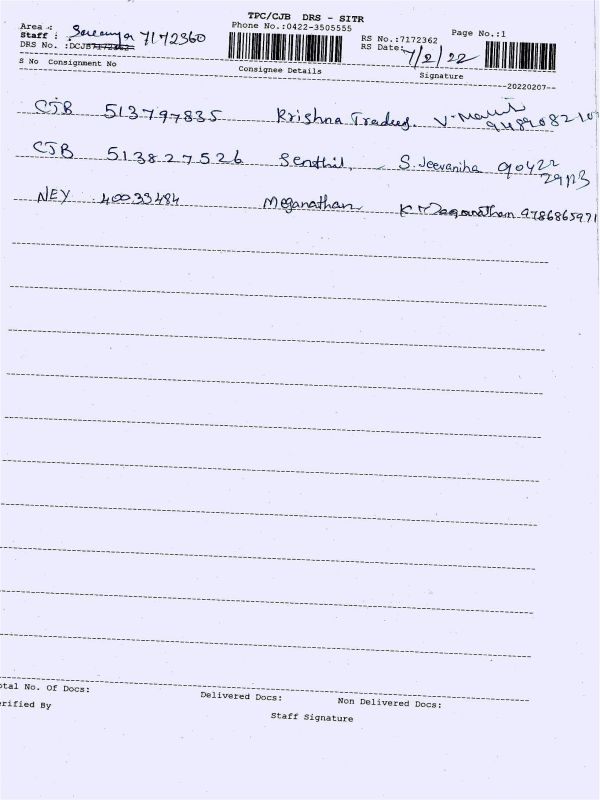 TPC/CJB DRS - SITR
Phone No.:0422-3505555
Page No.:1
Area :
Staff : 7172360
RS No.:7172362
DRS No. :DCJB7172362
RS Date: 7/2/22
S No Consignment No Consignee Details Signature
--20220207--
CJB 513797835 Krishna Traders.
CJB 513827526 Senthil, S. Jeevaniha 90422
29113
NEY 40033484 Meganathan K 9786865971
otal No. Of Docs:
Delivered Docs: Non Delivered Docs:
erified By
Staff Signature